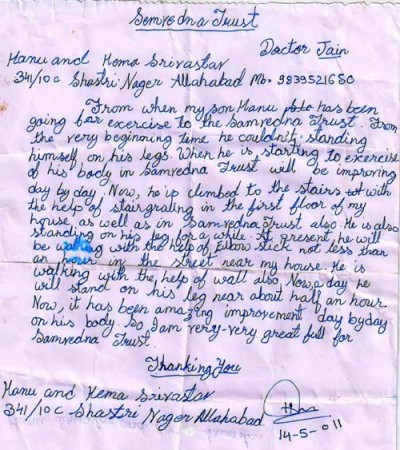 Semvedna Trust
Doctor Jain
Hanu and Hema Srivastav
341/10C Shastri Nager Allahabad Mb. 9839521680
From when my son Hanu has been
going for exercise to the Samvedna Trust. From
the very beginning time he couldn't standing
himself on his legs. When he is starting to exercise
of his body in Samvedna Trust will be improving
day by day. Now, he is climbed to the stairs with
the help of stairgrating in the first floor of my
house, as well as in Samvedna Trust also. He is also
standing on his leg for a while. At present, he will
be walking with the help of Elbow stick not less than
an hour in the street near my house. He is
walking with the help of wall also. Now a day he
will stand on his leg near about half an hour.
Now, it has been amazing improvement day by day
on his body. So, I am very-very great full for
Samvedna Trust.
Thanking You
Hanu and Hema Srivastav
341/10C Shastri Nager Allahabad
14-5-011